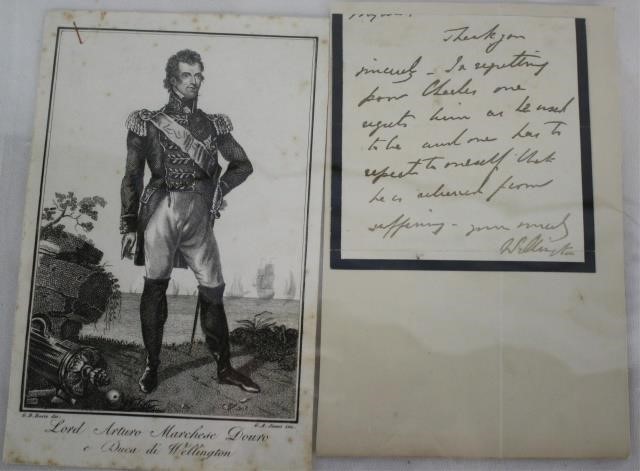 G. B. Bosio dis.
Lord Arturo Marchese Douro
e Duca di Wellington
Thank you
sincerely – In regretting
poor Charles one
regrets him as he used
to be and one has to
repeat to oneself that
he is relieved from
suffering – yours sincerely
Wellington